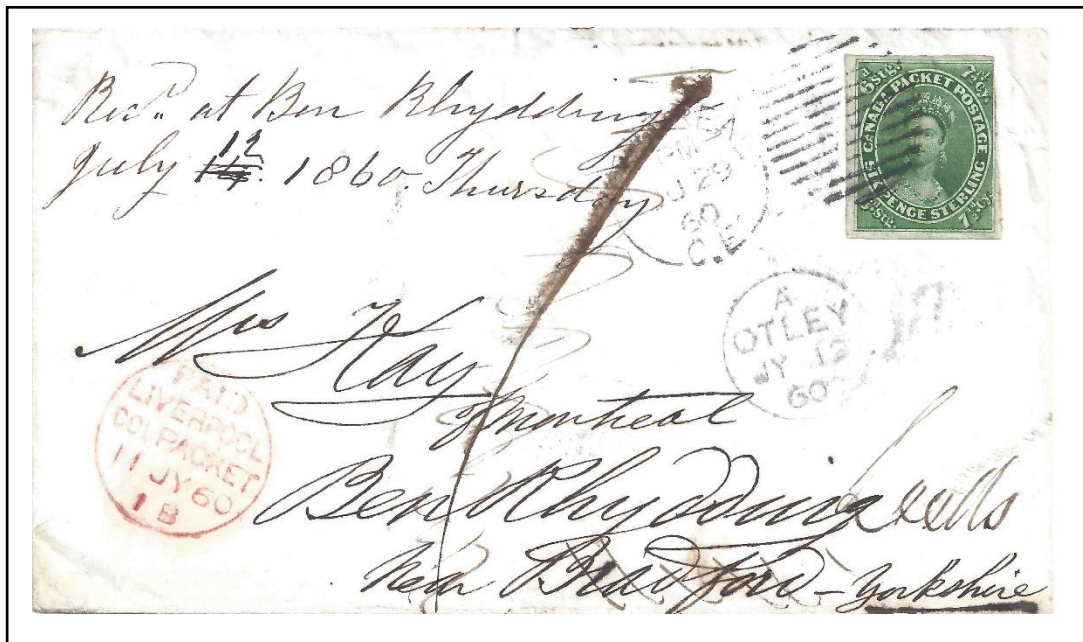 Recd. at Ben Rhydding
July 14. 12 1860. Thursday
6d Stg. 7½d Cy.
CANADA PACKET POSTAGE
SIX PENCE STERLING
PM
JU 29
60
C.E.
Mrs Kay
of Montreal
Ben Rhydding Leeds
near Bradford - Yorkshire
A
OTLEY
JY 12
60
PAID
LIVERPOOL
COL PACKET
11 JY 60
1 B